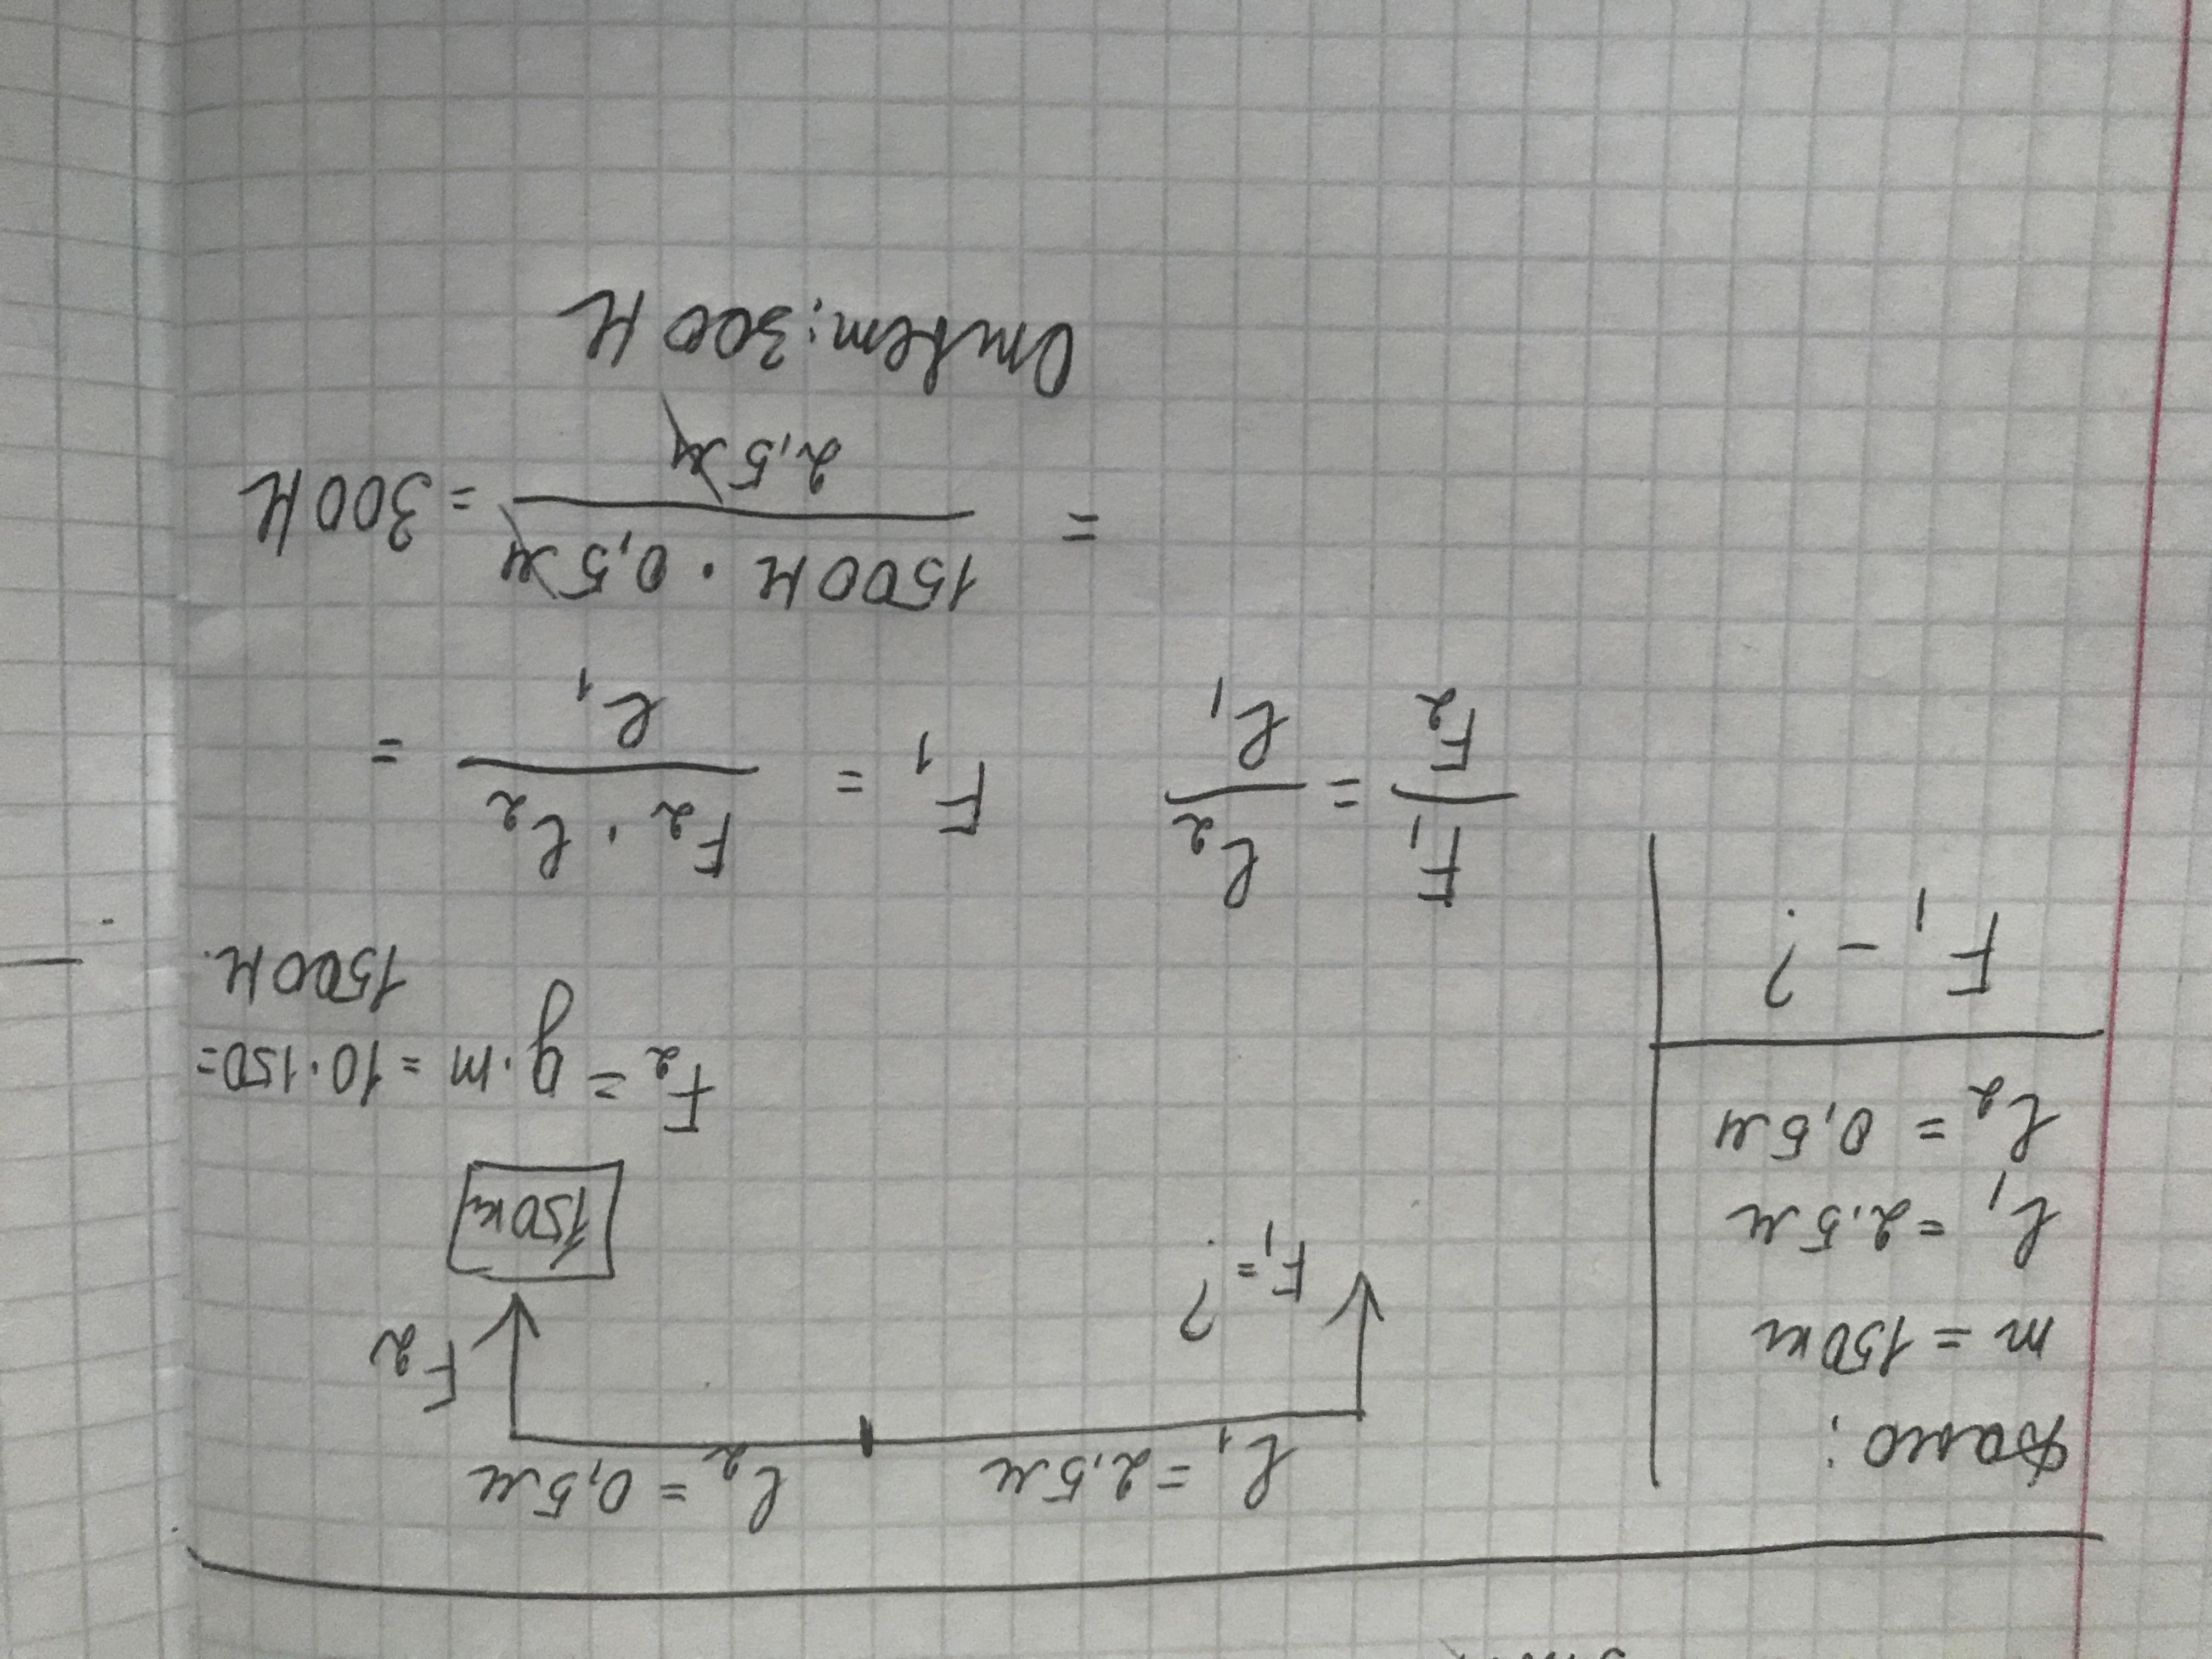 Дано:
m = 150 кг
l₁ = 2,5 м
l₂ = 0,5 м
F₁ - ?
l₁ = 2,5 м
l₂ = 0,5 м
F₁ = ?
F₂
150 кг
F₂ = g · m = 10 · 150 =
1500 Н.
F₁/F₂ = l₂/l₁
F₁ = F₂ · l₂/l₁ =
= 1500 Н · 0,5 м/2,5 м = 300 Н
Ответ: 300 Н